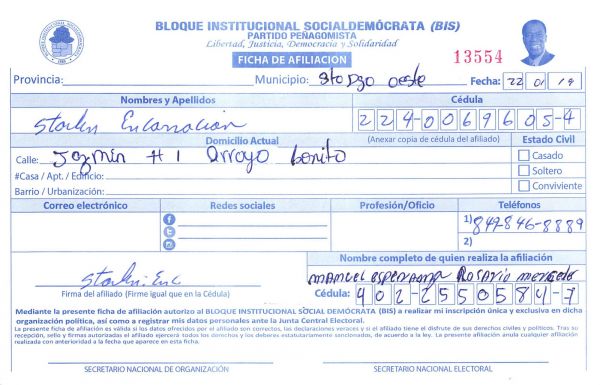 BLOQUE INSTITUCIONAL SOCIALDEMÓCRATA (BIS)
PARTIDO PEÑAGOMISTA
Libertad, Justicia, Democracia y Solidaridad
FICHA DE AFILIACIÓN
13554
Provincia: Municipio: Sto Dgo oeste Fecha: 22 01 19
Nombres y Apellidos Cédula
Starlin Encarnacion 224-0069605-4
Domicilio Actual (Anexar copia de cédula del afiliado) Estado Civil
Calle: Jazmin # 1 arroyo bonito Casado
#Casa / Apt. / Edificio: Soltero
Barrio / Urbanización: Conviviente
Correo electrónico Redes sociales Profesión/Oficio Teléfonos
1) 849-846-8889
2)
Nombre completo de quien realiza la afiliación
Starlin. Enc manuel esperanza Rosario mercedes
Firma del afiliado (Firme igual que en la Cédula) Cédula: 402-2550584-7
Mediante la presente ficha de afiliación autorizo al BLOQUE INSTITUCIONAL SOCIAL DEMÓCRATA (BIS) a realizar mi inscripción única y exclusiva en dicha
organización política, así como a registrar mis datos personales ante la Junta Central Electoral.
La presente ficha de afiliación es válida si los datos ofrecidos por el afiliado son correctos, las declaraciones veraces y si el afiliado tiene el disfrute de sus derechos civiles y políticos. Tras su
recepción, sello y firma autorizadas el afiliado ejercerá todos los derechos y los deberes estatutariamente sancionados, de acuerdo a la ley. La presente afiliación anula cualquier afiliación
realizada con anterioridad a la fecha que aparece en esta ficha.
SECRETARIO NACIONAL DE ORGANIZACIÓN SECRETARIO NACIONAL ELECTORAL